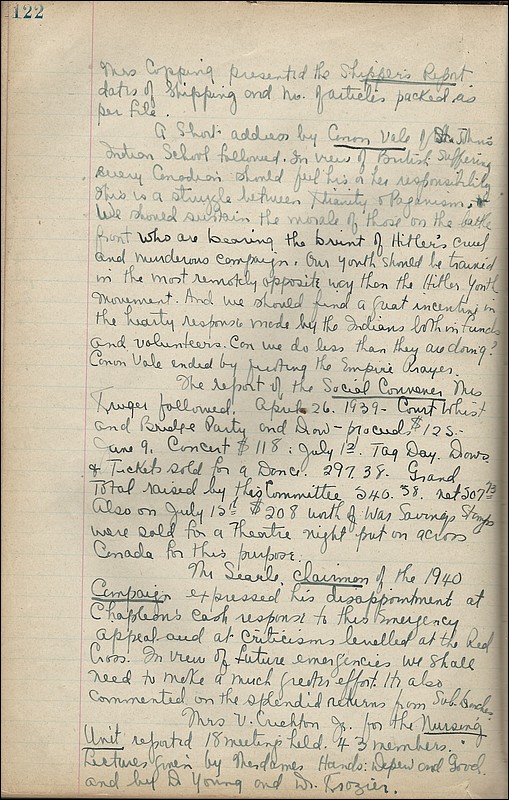 122
Mrs Copping presented the Shippers Report
dates of Shipping and No. of articles packed as
per file.
A Short address by Canon Vale of St. John's
Indian School followed. In view of British Suffering
every Canadian should feel his or her responsibility
This is a struggle between Xtianity & Paganism.
We should sustain the morale of those on the battle
front who are bearing the brunt of Hitler's cruel
and murderous campaign. Our youth should be trained
in the most remotely opposite way than the Hitler Youth
movement. And we should find a great incentive in
the hearty response made by the Indians both in funds
and volunteers. Can we do less than they are doing?
Canon Vale ended by quoting the Empire Prayer.
The report of the Social Convener Mrs
Kruger followed. April 26. 1939 - Court Whist
and Bridge Party and Draw - proceeds $125.-
June 9. Concert $118: July 1st. Tag Day. Draws
& Tickets sold for a Dance. 297.38. Grand
Total raised by this Committee 540.38. net 507.73
Also on July 15th $208 worth of War Savings Stamps
were sold for a Theatre night put on across
Canada for this purpose.
Mr Searle, chairman of the 1940
Campaign expressed his disappointment at
Chapleau's cash response to this Emergency
appeal and at criticisms levelled at the Red
Cross. In view of future emergencies we shall
need to make a much greater effort. He also
commented on the splendid returns from Sub. Branches
Mrs V. Crichton Jr. for the Nursing
Unit reported 18 meetings held. 43 members.
Lectures given by Mesdames Hands. Depew and Good.
and by D Young and W.